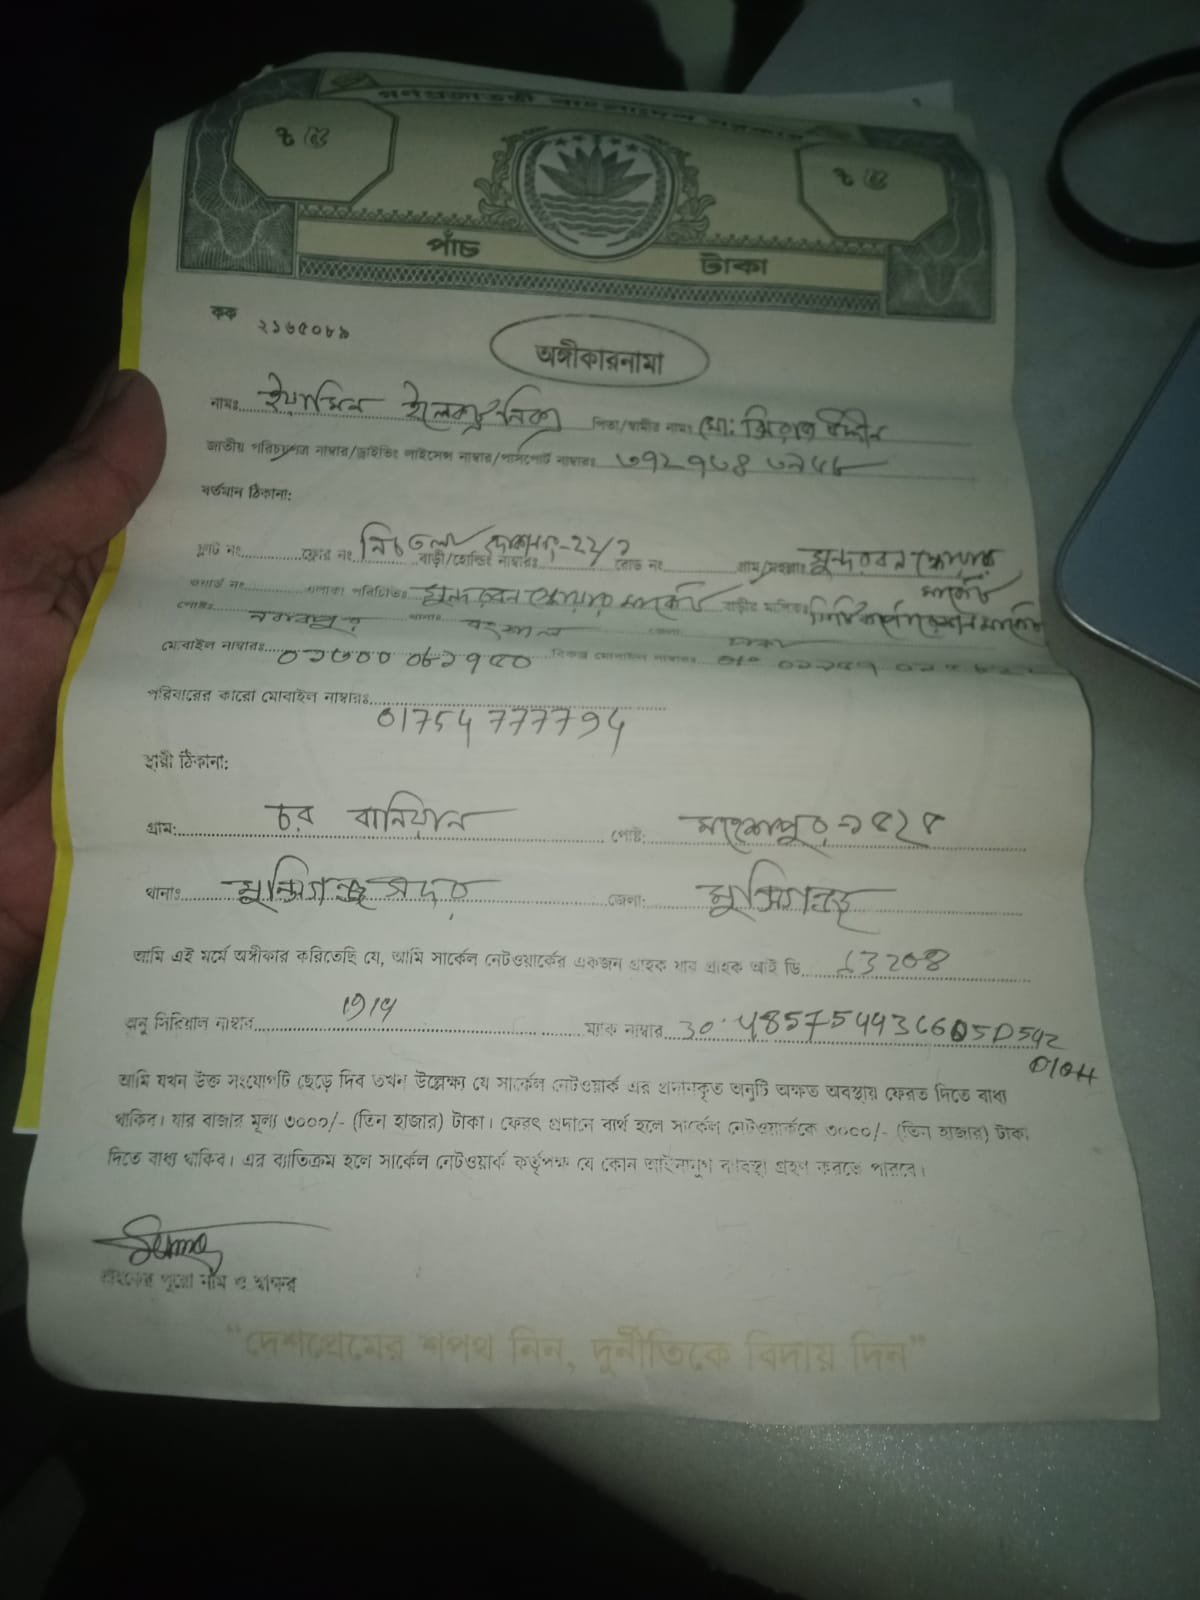 গণপ্রজাতন্ত্রী বাংলাদেশ সরকার
৳ ৫ ৳ ৫
পাঁচ টাকা
কক ২১৬৫০৮৯
অঙ্গীকারনামা
নামঃ ইয়ামিন ইলেকট্রনিক্স পিতা/স্বামীর নামঃ মো: সিরাজ উদ্দীন
জাতীয় পরিচয়পত্র নাম্বার/ড্রাইভিং লাইসেন্স নাম্বার/পাসপোর্ট নাম্বারঃ
বর্তমান ঠিকানা:
ফ্লাট নং ফ্লোর নং নিচ তলা বাড়ী/হোল্ডিং নাম্বারঃ দোকান নং-২২/১ রোড নং গ্রাম/মহল্লাঃ সুন্দরবন স্কোয়ার মার্কেট
ওয়ার্ড নং এলাকা পরিচিতঃ সুন্দরবন স্কোয়ার মার্কেট বাড়ীর মালিকঃ সিটি কর্পোরেশন মার্কেট
পোষ্টঃ নবাবপুর থানাঃ বংশাল জেলাঃ ঢাকা
মোবাইল নাম্বারঃ
পরিবারের কারো মোবাইল নাম্বারঃ 01754 777794
স্থায়ী ঠিকানা:
গ্রাম: চর বানিয়াল পোষ্ট: মহেশপুর-১৫২৫
থানাঃ মুন্সিগঞ্জ সদর জেলা: মুন্সিগঞ্জ
আমি এই মর্মে অঙ্গীকার করিতেছি যে, আমি সার্কেল নেটওয়ার্কের একজন গ্রাহক যার গ্রাহক আই ডি 13208
অনু সিরিয়াল নাম্বার ম্যাক নাম্বার
আমি যখন উক্ত সংযোগটি ছেড়ে দিব তখন উল্লেক্ষ্য যে সার্কেল নেটওয়ার্ক এর প্রদানকৃত অনুটি অক্ষত অবস্থায় ফেরত দিতে বাধ্য
থাকিব। যার বাজার মূল্য ৩০০০/- (তিন হাজার) টাকা। ফেরৎ প্রদানে ব্যর্থ হলে সার্কেল নেটওয়ার্ককে ৩০০০/- (তিন হাজার) টাকা
দিতে বাধ্য থাকিব। এর ব্যতিক্রম হলে সার্কেল নেটওয়ার্ক কর্তৃপক্ষ যে কোন আইনানুগ ব্যবস্থা গ্রহণ করতে পারবে।
গ্রাহকের পুরো নাম ও স্বাক্ষর
“দেশপ্রেমের শপথ নিন, দুর্নীতিকে বিদায় দিন”